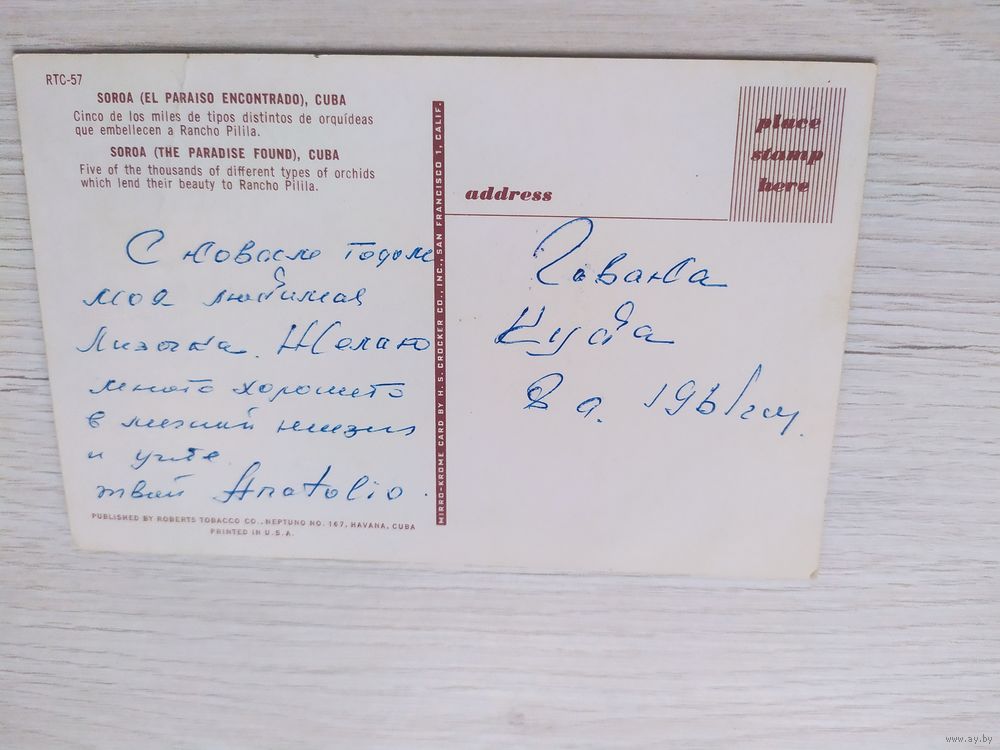 RTC-57
SOROA (EL PARAISO ENCONTRADO), CUBA
Cinco de los miles de tipos distintos de orquídeas
que embellecen a Rancho Pilila.
SOROA (THE PARADISE FOUND), CUBA
Five of the thousands of different types of orchids
which lend their beauty to Rancho Pilila.
С новасле годом
моя любимая
Лизочка. Желаю
много хорошего
в личний жизни
и учёбе
твой Anatolio.
PUBLISHED BY ROBERTS TOBACCO CO., NEPTUNO NO. 167, HAVANA, CUBA
PRINTED IN U.S.A.
MIRRO-KROME CARD BY H. S. CROCKER CO., INC., SAN FRANCISCO 1, CALIF.
place
stamp
here
address
Гавана
Куба
www.ay.by